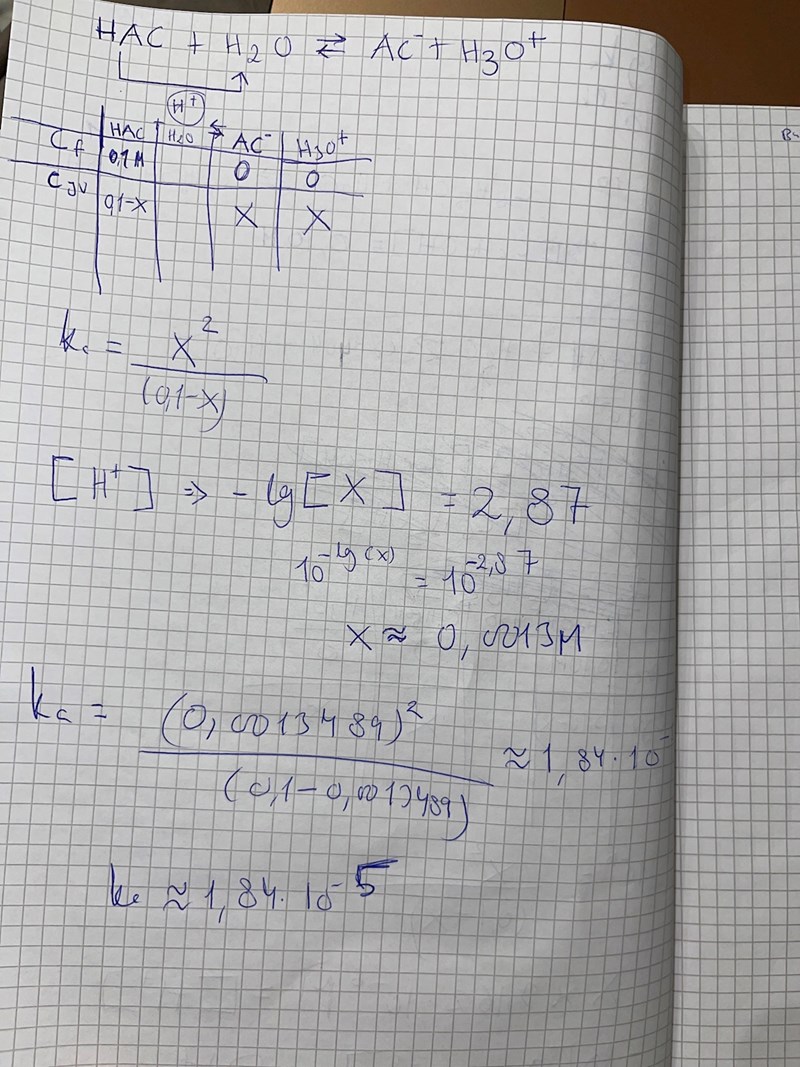 HAC + H2O ⇄ AC⁻ + H3O⁺
H⁺
HAC + H2O ⇄ AC⁻ H3O⁺
Cf 0,1M 0 0
CJV 0,1-X X X
kc = X² / (0,1-X)
[H⁺] ⇒ -lg[X] = 2,87
10^-lg(x) = 10^-2,87
X ≈ 0,0013M
kc = (0,0013489)² / (0,1-0,0013489) ≈ 1,84·10⁻
kc ≈ 1,84·10⁻⁵